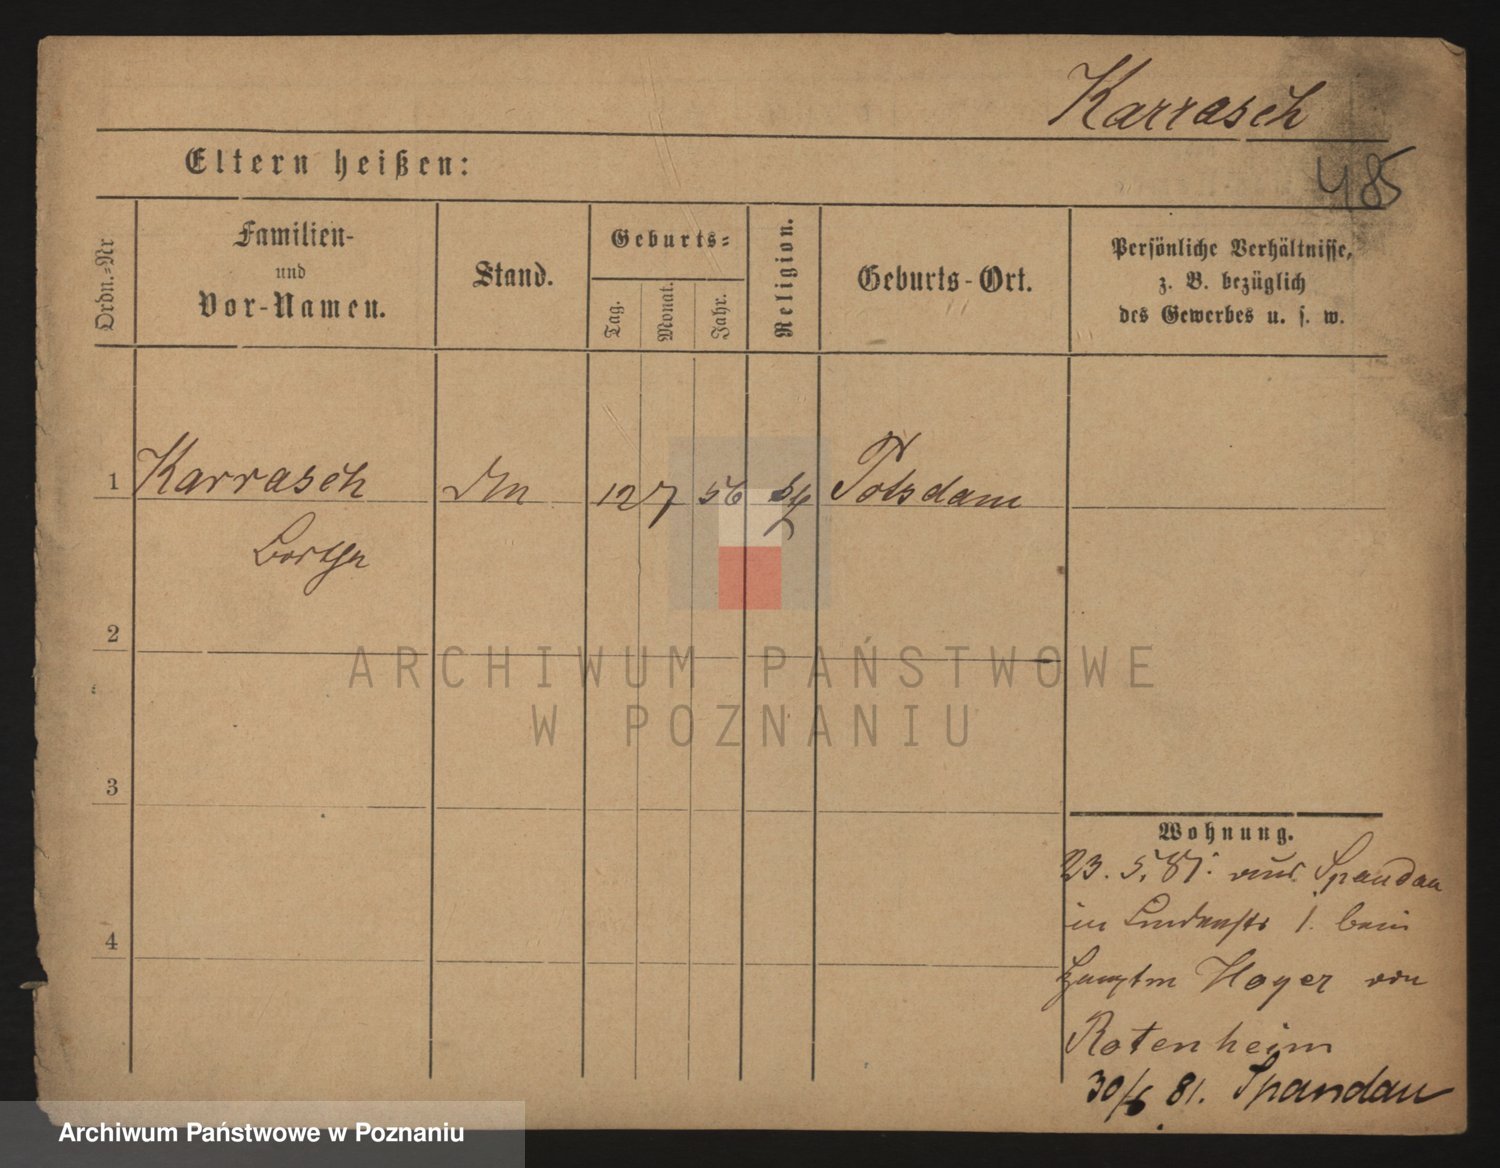 Karrasch
485
Eltern heißen:
Ordn.=Nr
Familien-
und
Vor-Namen.
Stand.
Geburts=
Tag.
Monat.
Jahr.
Religion.
Geburts-Ort.
Persönliche Verhältnisse,
z. B. bezüglich
des Gewerbes u. s. w.
1 Karrasch 12 7 56 Potsdam
Bertha
2
3
4
Wohnung.
23. 5. 81. aus Spandau
in Lindenstr 1. beim
Hauptm Hoyer von
Rotenheim
30/6 81. Spandau
ARCHIWUM PAŃSTWOWE
W POZNANIU
Archiwum Państwowe w Poznaniu